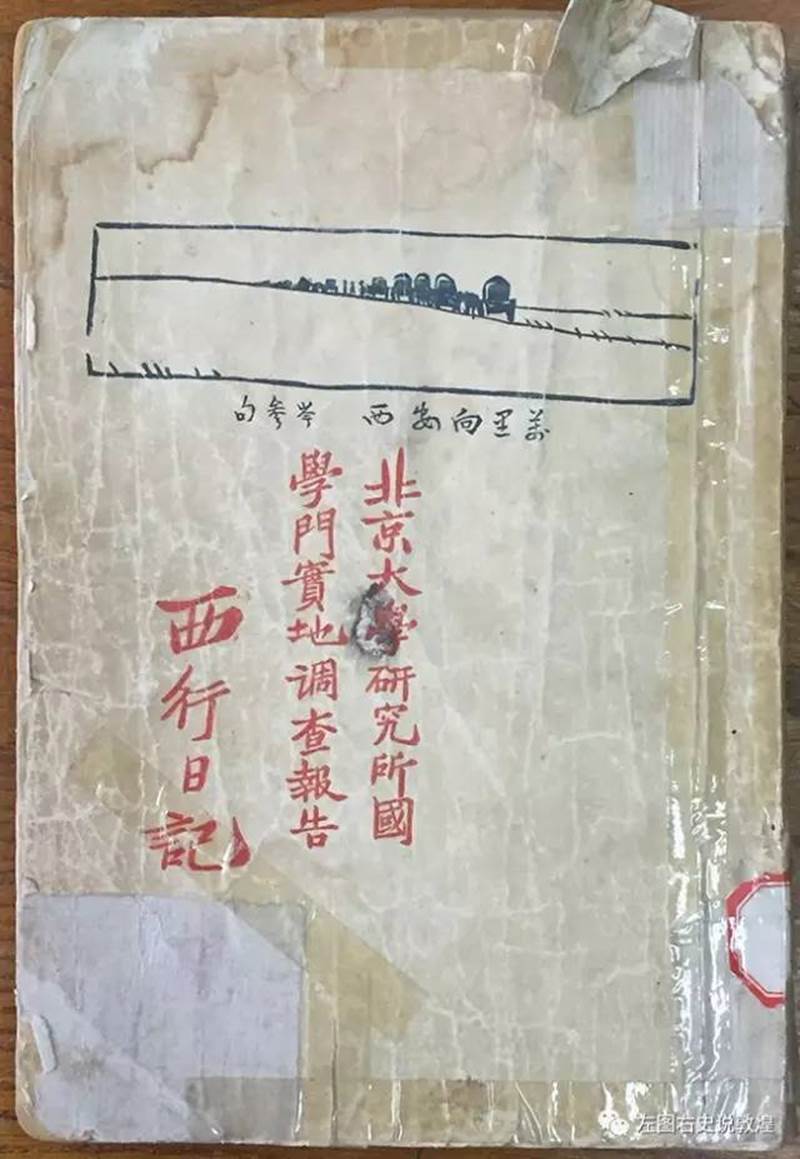 萬里向安西 岑參句
北京大學研究所國
學門實地調查報告
西行日記
左图右史说敦煌